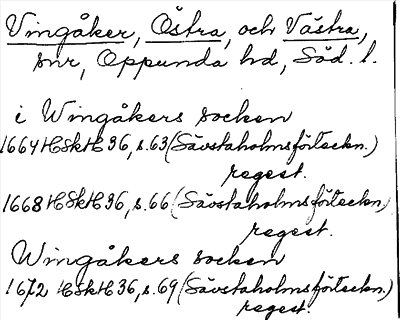 Vingåker, Östra, och Västra,
snr, Oppunda hd, Söd. l.
i Wingåkers socken
1664 HSkH 36, s. 63 (Sävstaholmsförteckn.)
regest.
1668 HSkH 36, s. 66 (Sävstaholmsförteckn.)
regest.
Wingåkers socken
1672 HSkH 36, s. 69 (Sävstaholmsförteckn.)
regest.